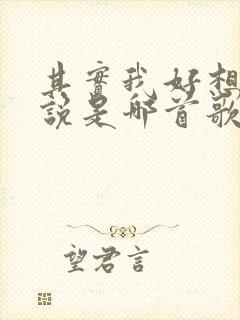 其實我好想
說是哪首歌
望君言